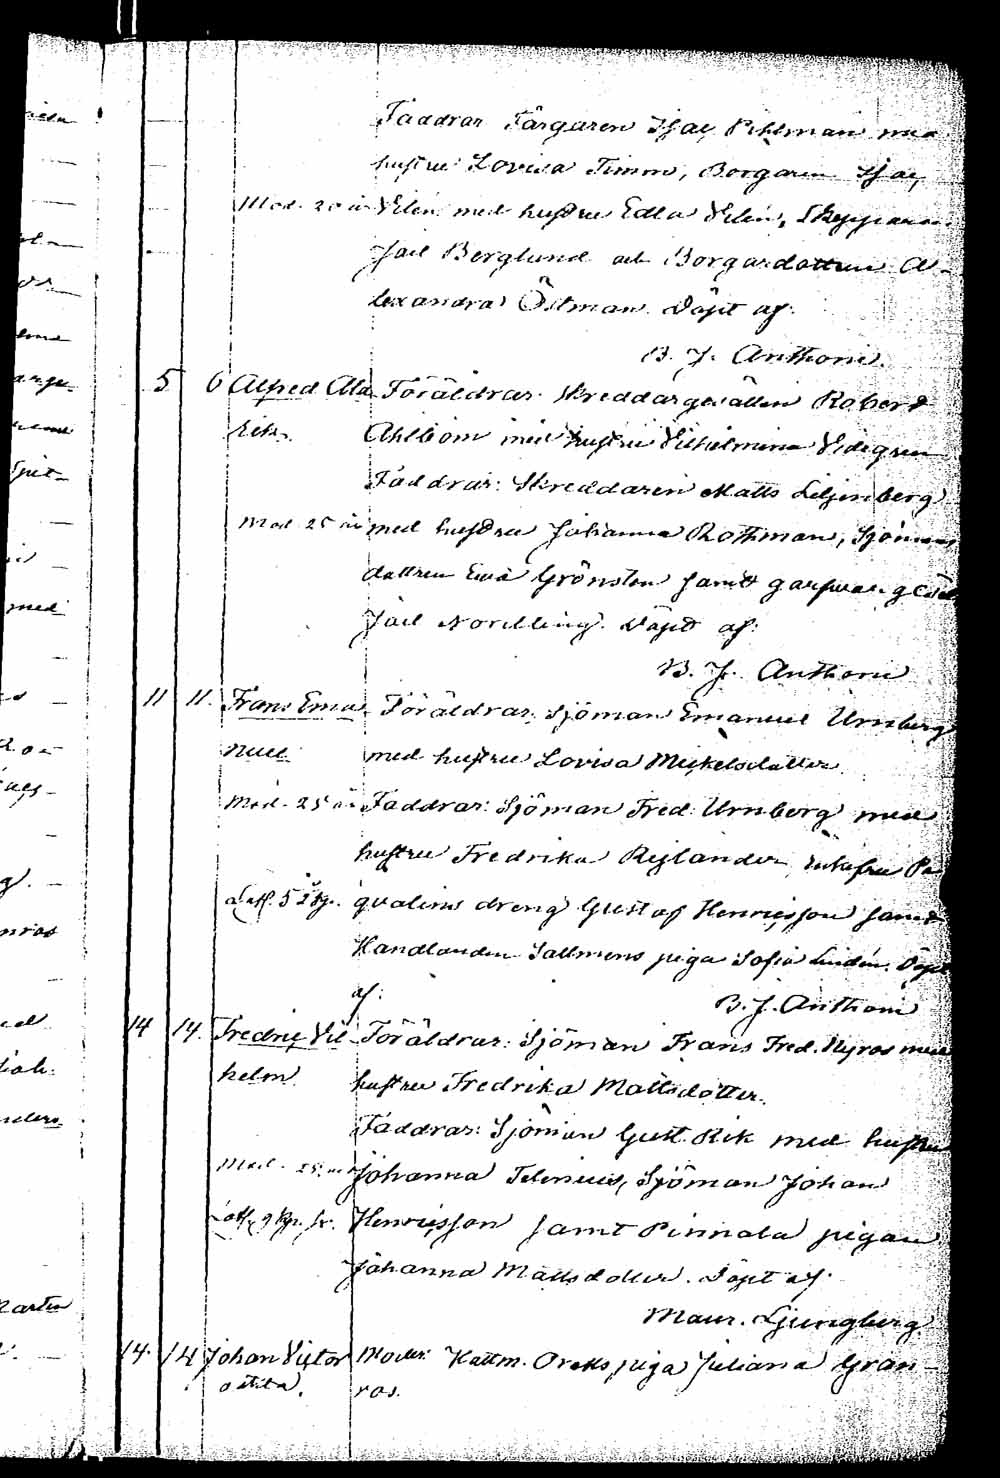 Faddrar Färgaren Isac Pihlman med
hustru Lovisa Timm, Borgaren Isac
Mod. 20 år Vilén med hustru Edla Vilén, Skepparen
Joel Berglund och Borgardottren A-
lexandra Östman. Döpt af:
B. J. Anthoni.
5 6 Alfred Ala- Föräldrar: Skreddargesällen Robert
rik. Ahlbom med hustru Vilhelmina Videgren
Faddrar: Skreddaren Matts Liljenberg
Mod 25 år med hustru Johanna Rothman, Sjömans
dottren Eva Grönsten samt garfvar ges
Joel Nordling. Döpt af:
B. J. Anthoni
11 11. Frans Ema- Föräldrar: Sjöman Emanuel Urnberg
nuel med hustru Lovisa Mickelsdotter
Mod. 25 år Faddrar: Sjöman Fred. Urnberg med
hustru Fredrika Rejlander, enkefru Pa
qvalins dreng Gustaf Henricsson samt
Handlanden Sallmens piga Sofia Lindén. Döpt
af: B. J. Anthoni
14 14. Fredric Vil- Föräldrar: Sjöman Frans Fred. Nyros med
helm hustru Fredrika Mattsdotter.
Faddrar: Sjöman Gust. Rik med hustru
Mod. 25 år Johanna Telenius, Sjöman Johan
Henricsson samt Pinnala pigan
Johanna Mattsdotter. Döpt af:
Maur. Ljungberg.
14. 14 Johan Victor Moder: Kattm. piga Juliana Gran-
oäkta. ros.